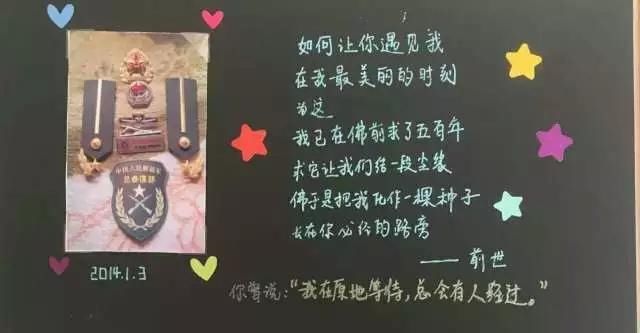 如何让你遇见我
在我最美丽的时刻
为这
我已在佛前求了五百年
求它让我们结一段尘缘
佛于是把我化作一棵种子
长在你必经的路旁
——前世
中国人民解放军
2014.1.3
你曾说:“我在原地等待,总会有人经过。”